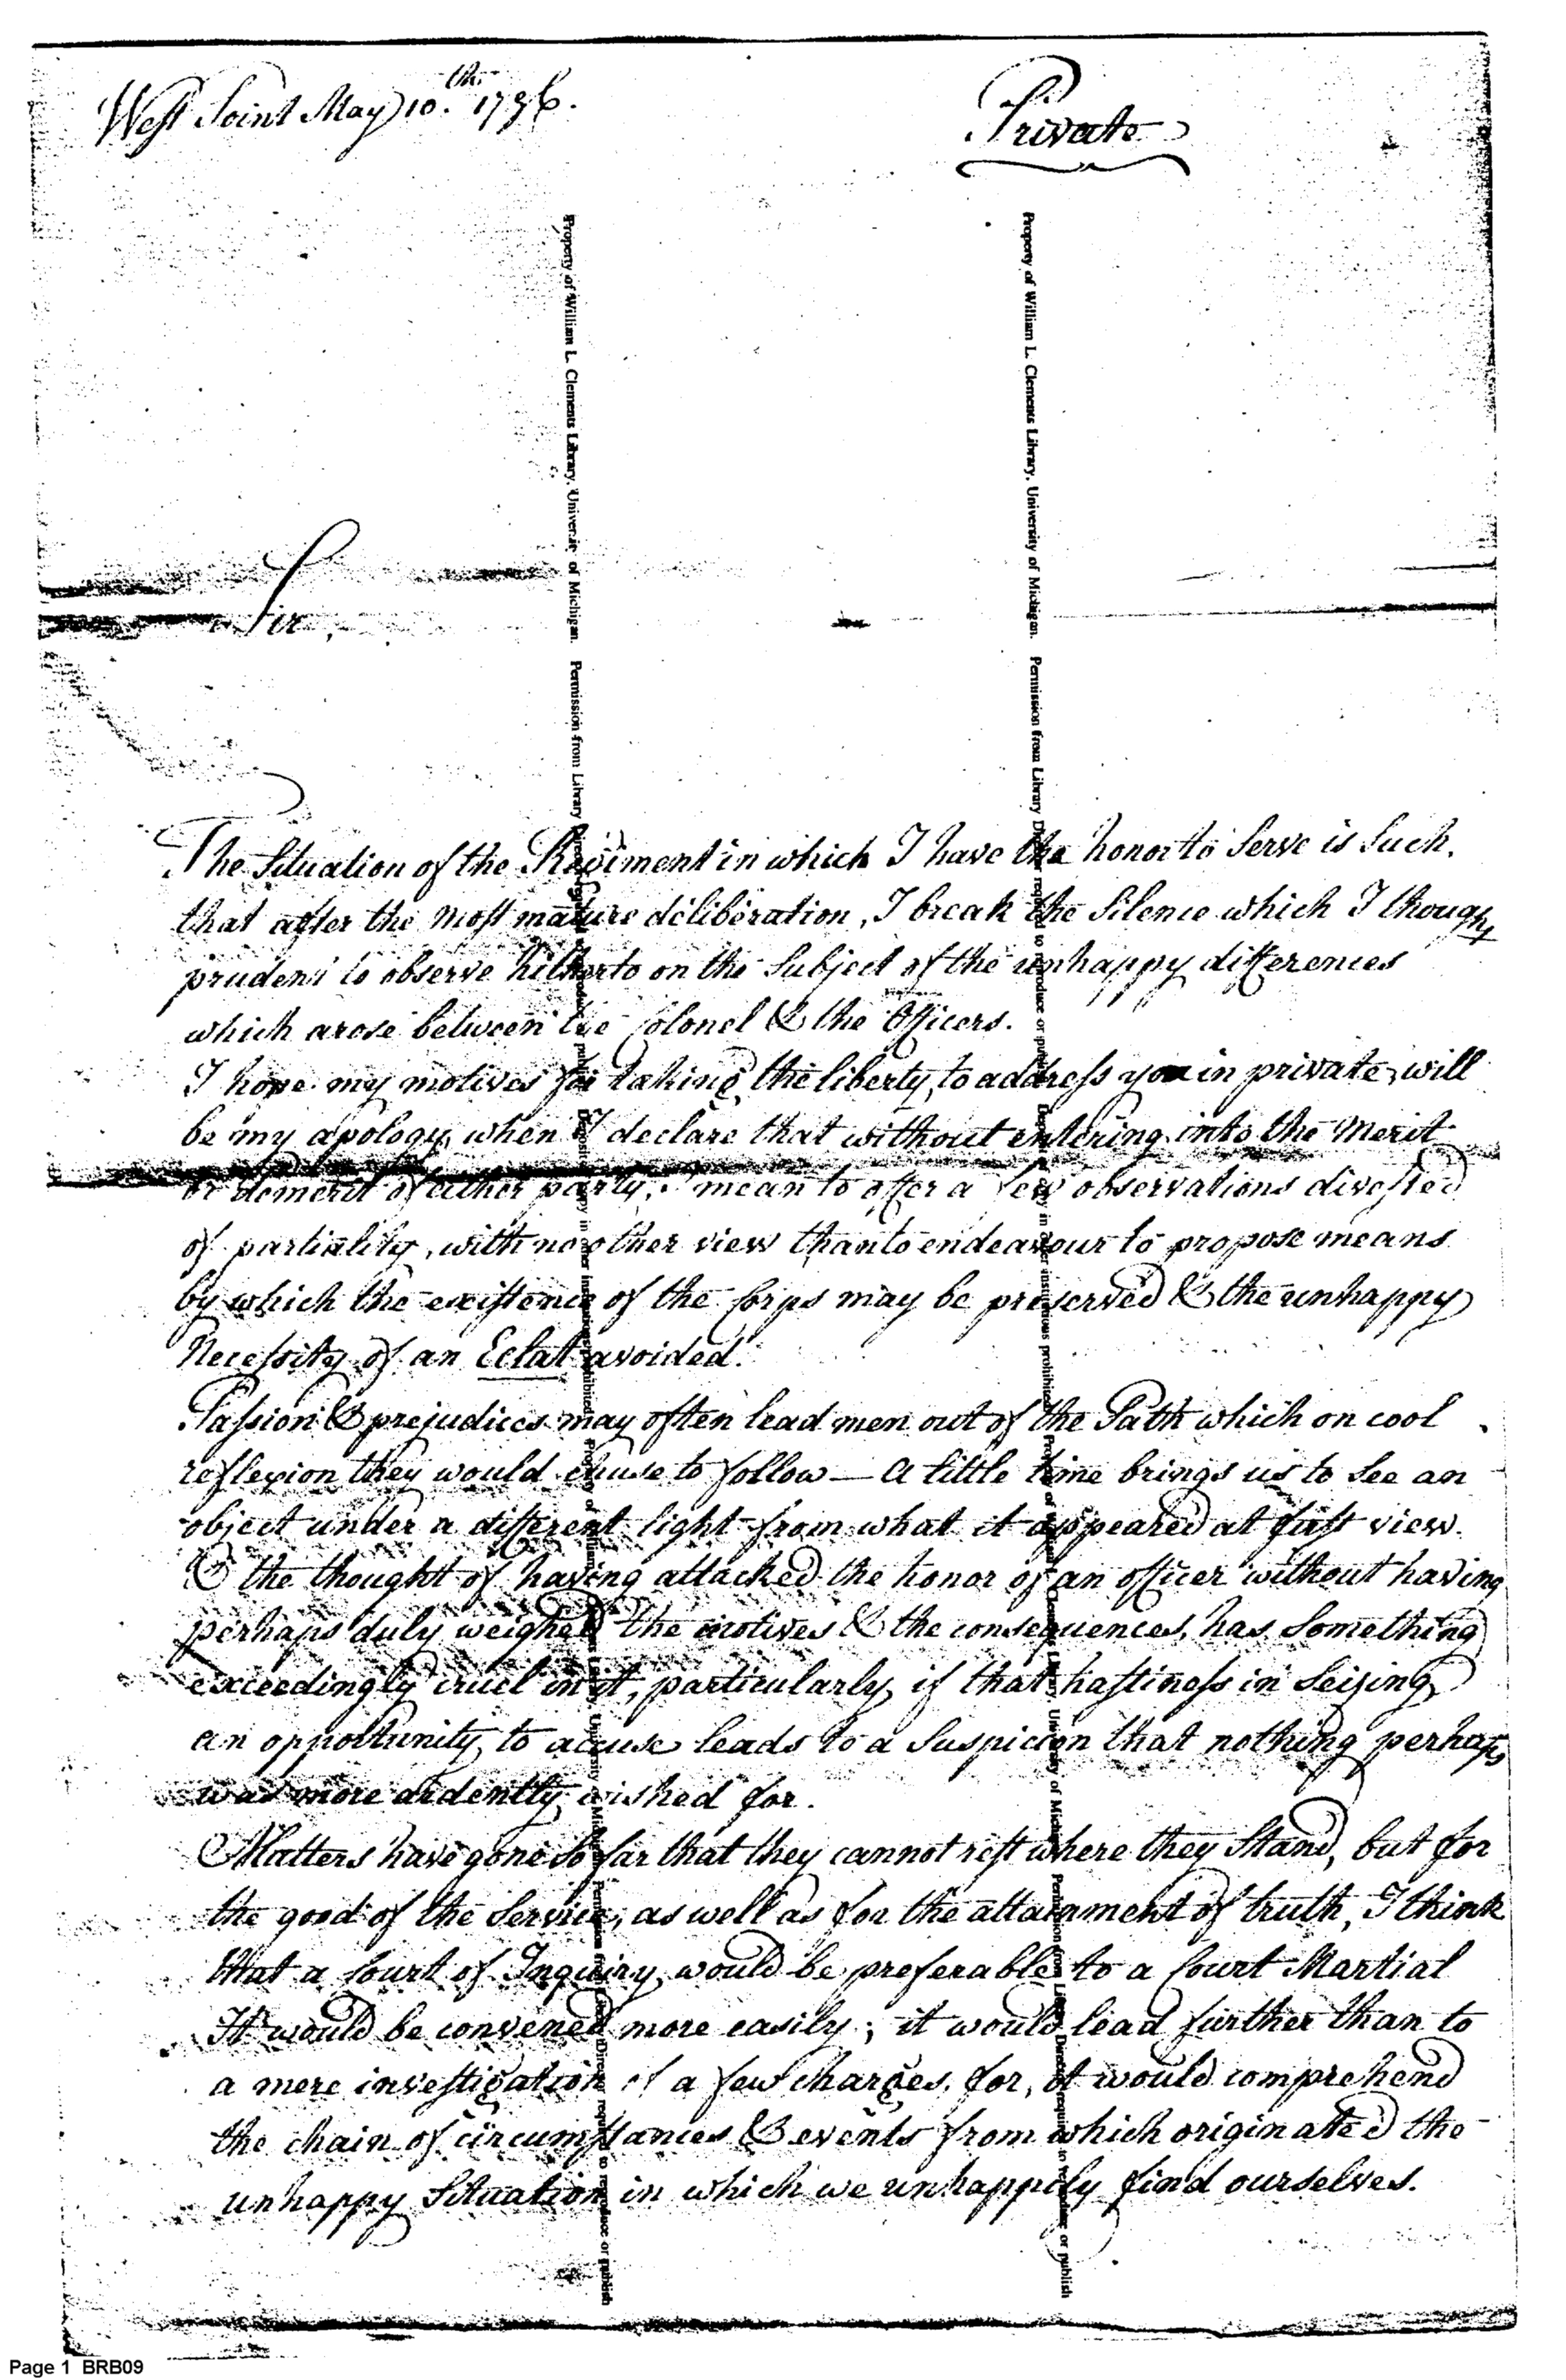 West Point May 10.th 1796.
Private
Sir,
The Situation of the Regiment in which I have the honor to Serve is Such,
that after the most mature deliberation, I break the Silence which I thought
prudent to observe hitherto on the Subject of the unhappy differences
which arose between the Colonel & the Officers.
I hope my motives for taking the liberty, to address you in private, will
be my apology, when I declare that without entering into the Merit
or demerit of either party, I mean to offer a few observations divested
of partiality, with no other view than to endeavour to propose means
by which the existence of the Corps may be preserved & the unhappy
Necessity of an Eclat avoided.
Passion & prejudices may often lead men out of the Path which on cool
reflexion they would chuse to follow — A little time brings us to See an
object under a different light from what it appeared at first view.
& the thought of having attacked the honor of an officer without having
perhaps duly weighed the motives & the consequences, has Something
exceedingly cruel in it, particularly, if that hastiness in Seizing
an opportunity, to accuse leads to a Suspicion that nothing perhaps
was more ardently wished for.
Matters have gone so far that they cannot rest where they Stand, but for
the good of the Service, as well as for the attainment of truth, I think
that a Court of Inquiry, would be preferable to a Court Martial
It would be convened more easily; it would lead further than to
a mere investigation of a few charges, for, it would comprehend
the chain of circumstances & events from which originated the
unhappy Situation in which we unhappily find ourselves.
Property of William L. Clements Library, University of Michigan. Permission from Library Director required to reproduce or publish. Deposit of copy in other institutions prohibited.
Property of William L. Clements Library, University of Michigan. Permission from Library Director required to reproduce or publish
Property of William L. Clements Library, University of Michigan. Permission from Library Director required to reproduce or publish. Deposit of copy in other institutions prohibited.
Property of William L. Clements Library, University of Michigan. Permission from Library Director required to reproduce or publish
Page 1 BRB09